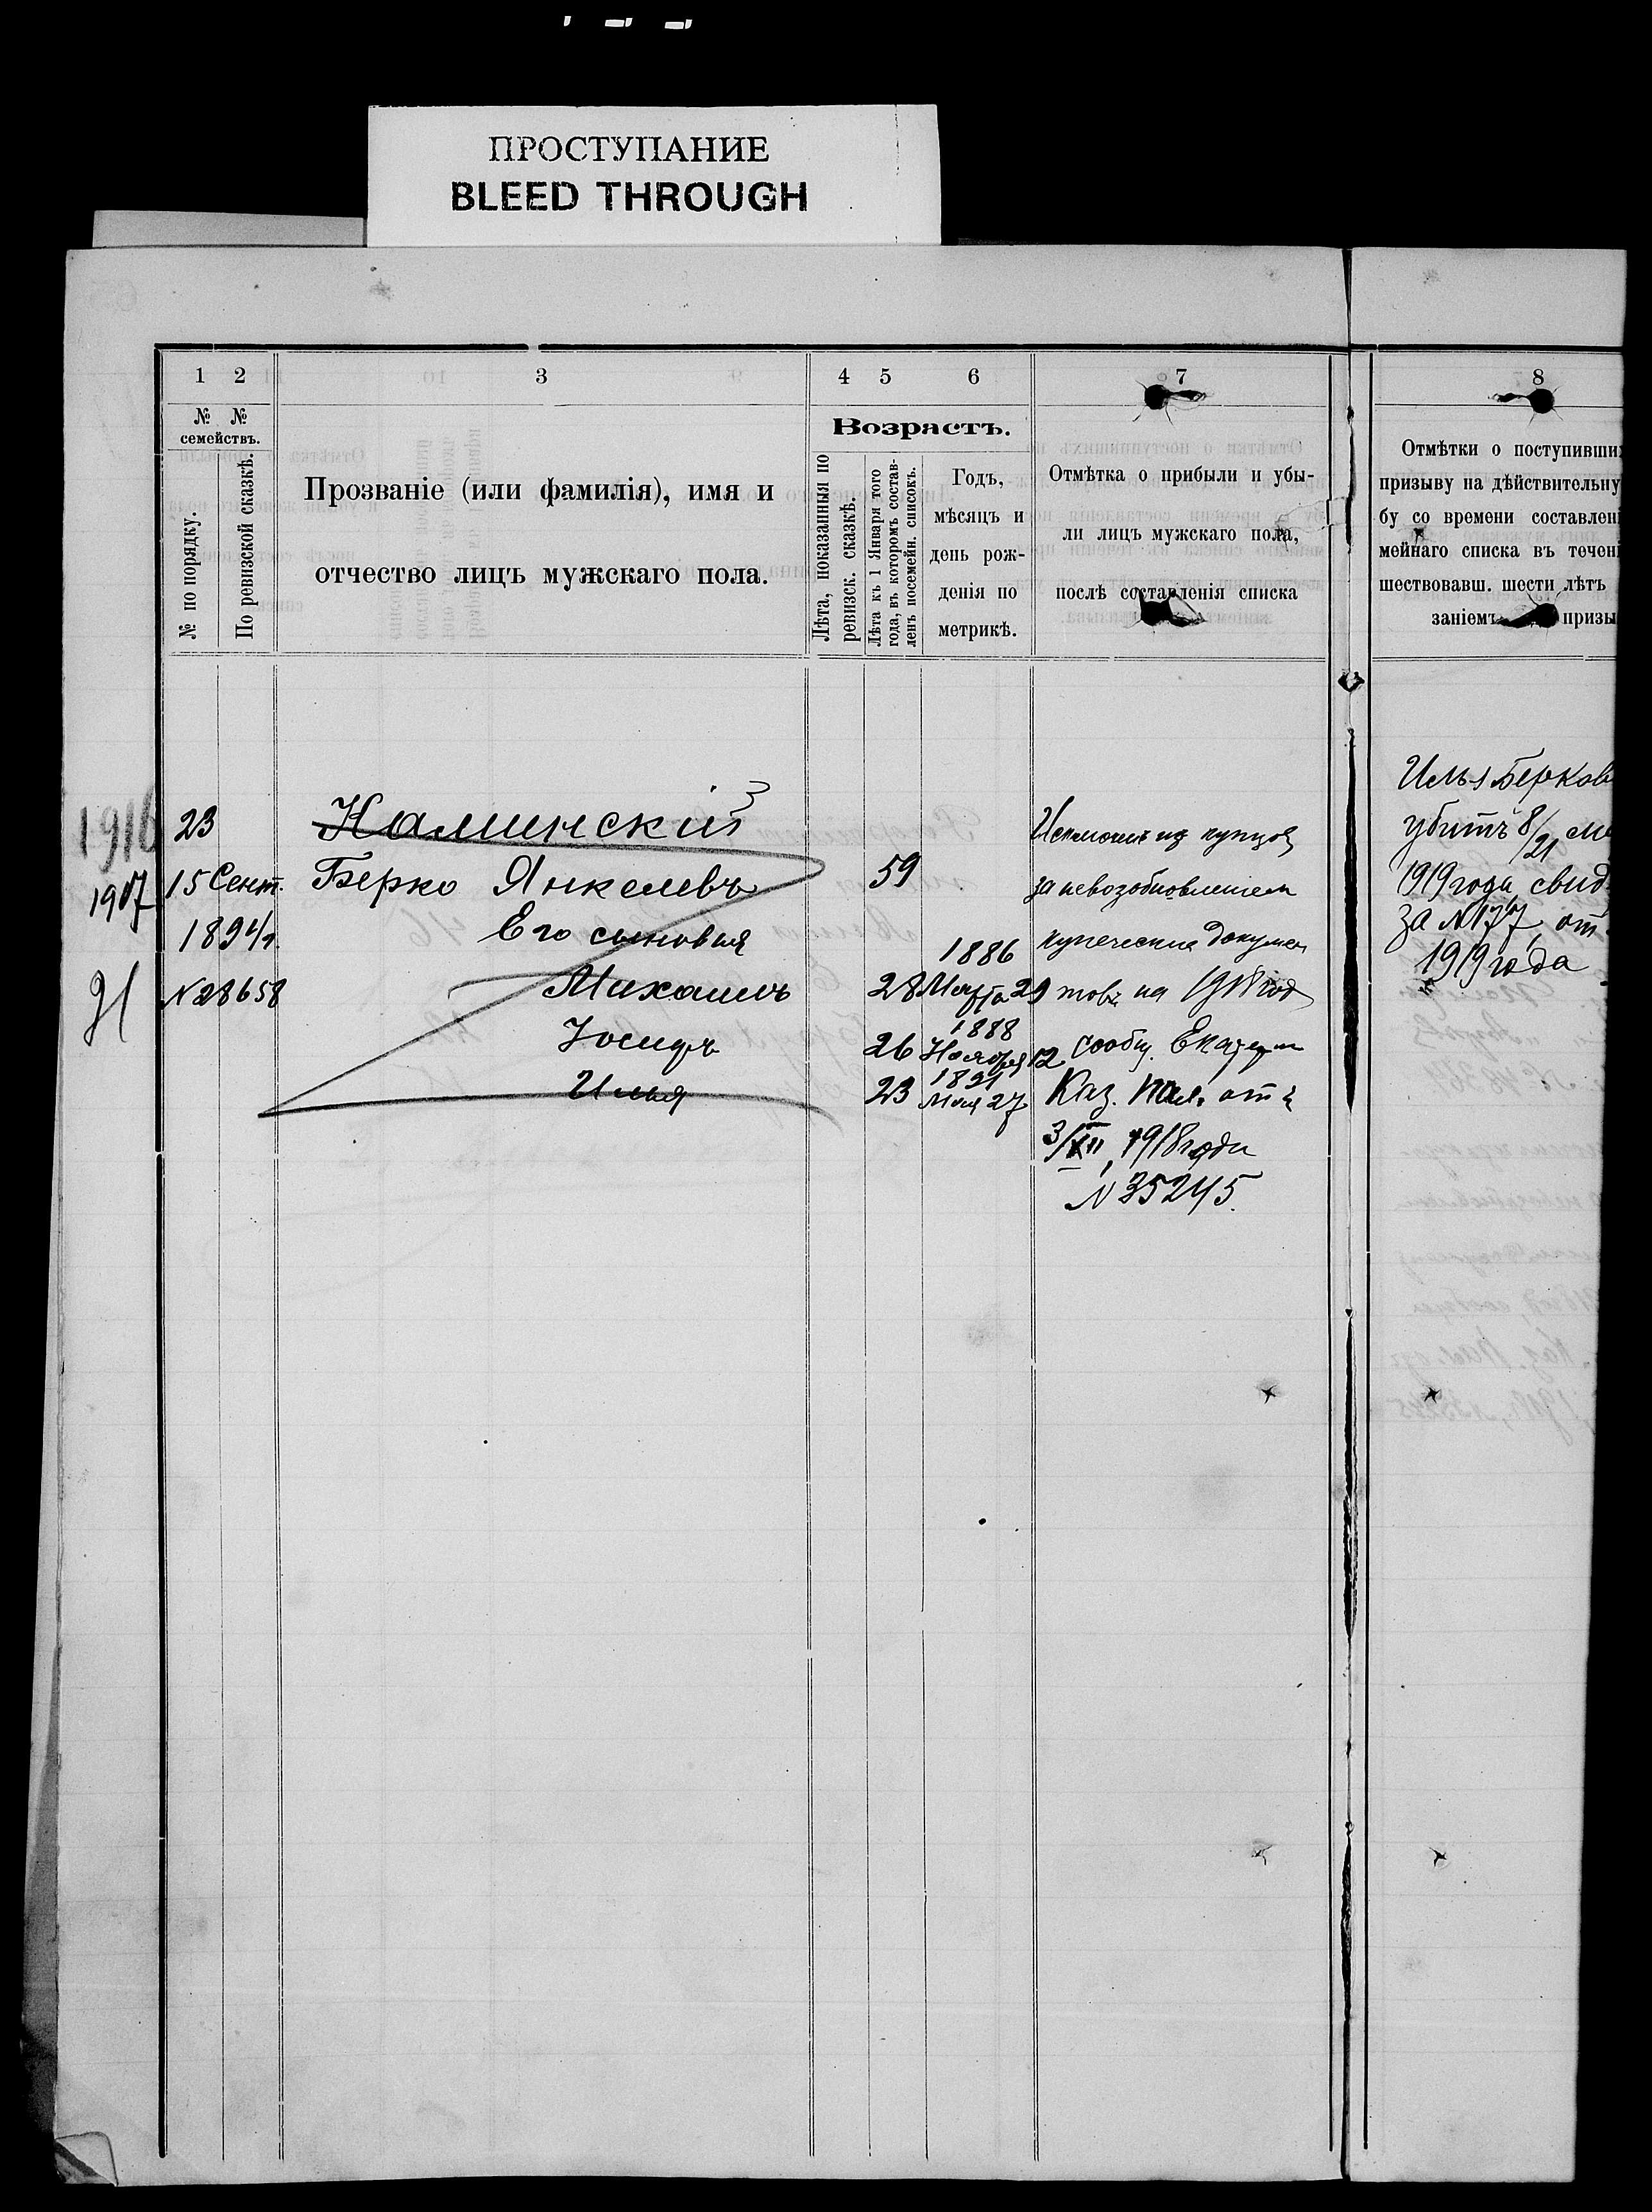 ПРОСТУПАНИЕ
BLEED THROUGH
1 2 3 4 5 6 7 8
№ № семействъ.
№ по порядку.
По ревизской сказкѣ.
Прозваніе (или фамилія), имя и
отчество лицъ мужскаго пола.
Возрастъ.
Лѣта, показанныя по
ревизск. сказкѣ.
Лѣта къ 1 Января того
года, въ которомъ состав-
ленъ посемейн. списокъ.
Годъ,
мѣсяцъ и
день рож-
денія по
метрикѣ.
Отмѣтка о прибыли и убы-
ли лицъ мужскаго пола,
послѣ составленія списка
Отмѣтки о поступивши
призыву на дѣйствительну
бу со времени составлен
мейнаго списка въ течен
шествовавш. шести лѣтъ
заніемъ призы
1916
1907
23
15 Сент.
1894 г.
№ 28658
Каминскій
Берко Янкелевъ 59
Его сыновья
Михаилъ 28 1886 Марта 29
Іосифъ 26 1888 Ноября 12
Илья 23 1891 Мая 27
Исключенъ из купцов
за невозобновлением
купеческие докумен
товъ на 1918 год
сообщ. Екатерин
Каз. Пал. отъ
3/XII 1918 года
N 35245.
Илья Берков
убитъ 8/21
1919 года свид
за № 177 от
1919 года